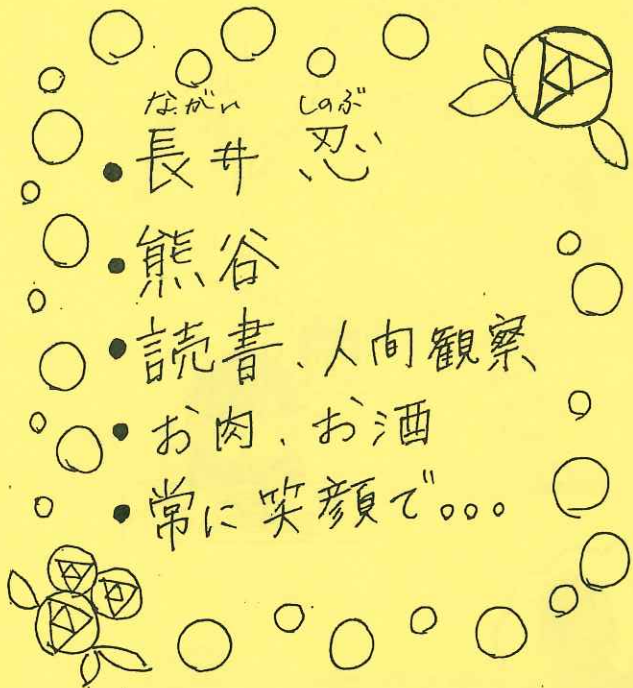 ながい しのぶ
・長井 忍
・熊谷
・読書、人間観察
・お肉、お酒
・常に笑顔で。。。